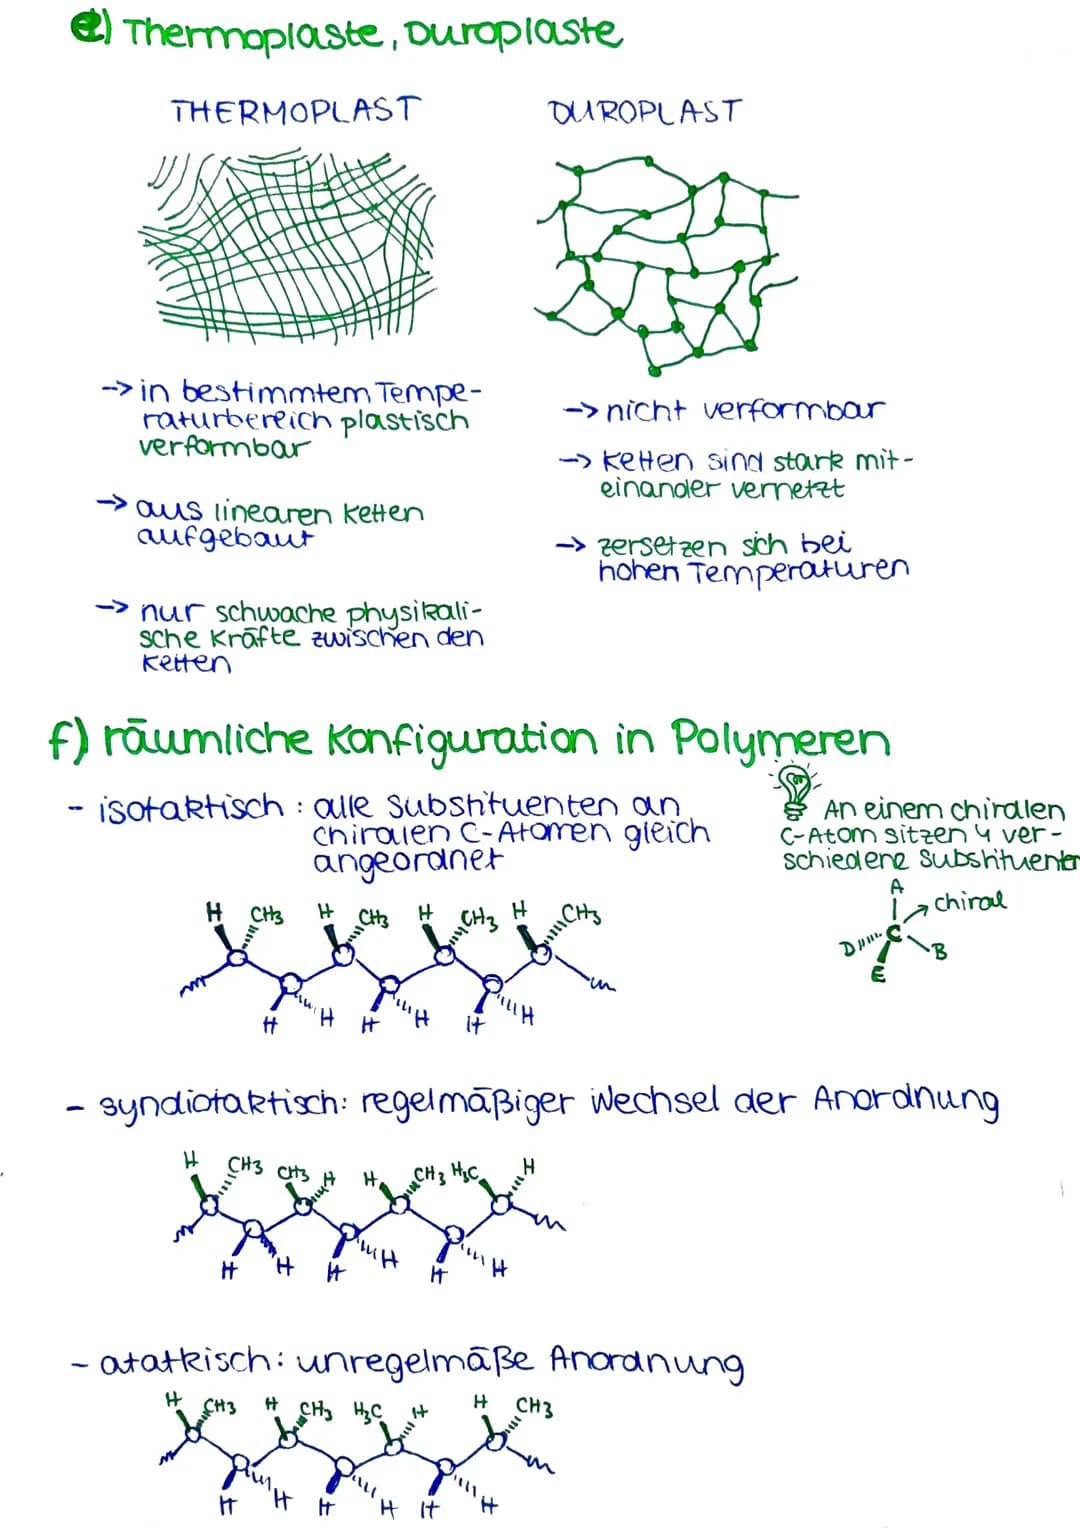 e) Thermoplaste, Duroplaste
THERMOPLAST
DUROPLAST
-> in bestimmtem Tempe-
raturbereich plastisch
verformbar
-> aus linearen Ketten
aufgebaut
-> nur schwache physikali-
sche Kräfte zwischen den
Ketten
-> nicht verformbar
-> Ketten sind stark mit-
einander vernetzt
-> zersetzen sich bei
hohen Temperaturen
f) räumliche Konfiguration in Polymeren
- isotaktisch: alle Substituenten an
chiralen C-Atomen gleich
angeordnet
An einem chiralen
C-Atom sitzen 4 ver-
schiedene Substituenten
A
chiral
D C B
E
H CH3 H CH3 H CH3 H CH3
H H H H H H
- syndiotaktisch: regelmäßiger Wechsel der Anordnung
H CH3 CH3 H H CH3 H3C H
H H H H H H
- atatkisch: unregelmäße Anordnung
H CH3 H CH3 H3C H H CH3
H H H H H H